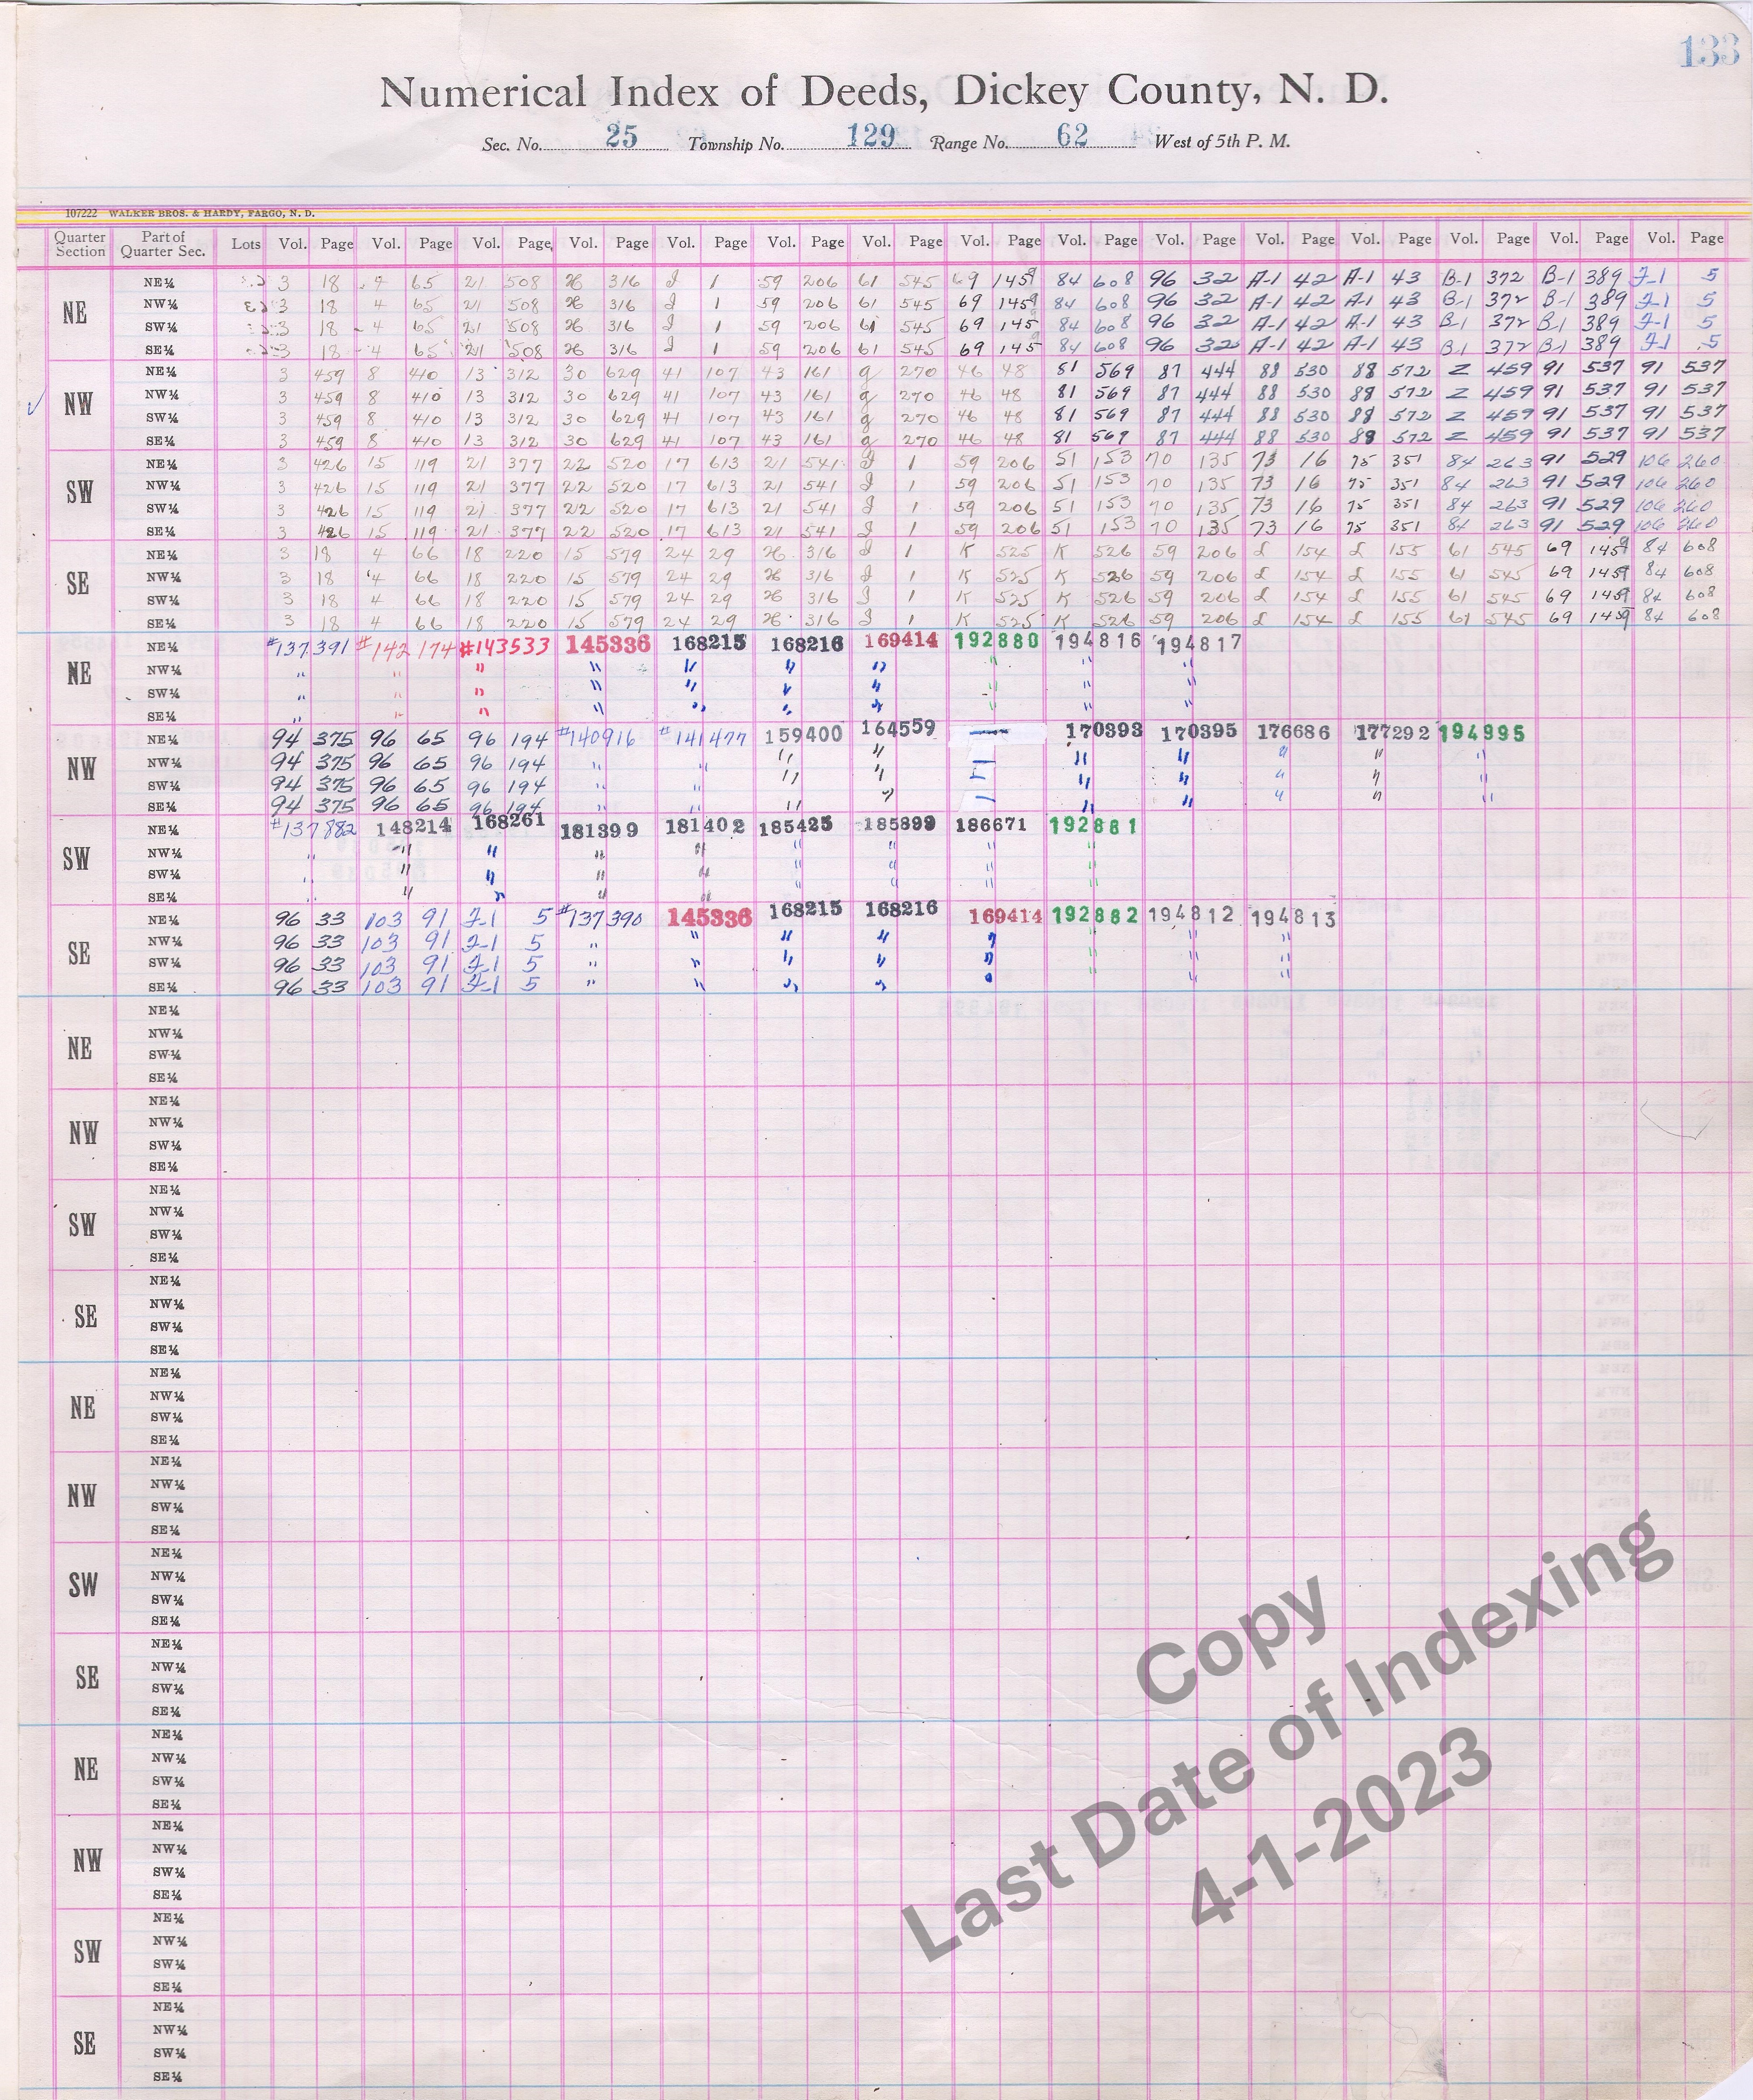 133
Numerical Index of Deeds, Dickey County, N. D.
Sec. No. 25 Township No. 129 Range No. 62 West of 5th P. M.
107222 WALKER BROS. & HARDY, FARGO, N. D.
Quarter Section Part of Quarter Sec. Lots Vol. Page Vol. Page Vol. Page Vol. Page Vol. Page Vol. Page Vol. Page Vol. Page Vol. Page Vol. Page Vol. Page Vol. Page Vol. Page Vol. Page Vol. Page
NE
NE¼ 3 18 4 65 21 508 H 316 J 1 59 206 61 545 69 145 84 608 96 32 A-1 42 A-1 43 B-1 372 B-1 389 J-1 5
NW¼ 3 18 4 65 21 508 H 316 J 1 59 206 61 545 69 145 84 608 96 32 A-1 42 A-1 43 B-1 372 B-1 389 J-1 5
SW¼ 3 18 4 65 21 508 H 316 J 1 59 206 61 545 69 145 84 608 96 32 A-1 42 A-1 43 B-1 372 B-1 389 J-1 5
SE¼ 3 18 4 65 21 508 H 316 J 1 59 206 61 545 69 145 84 608 96 32 A-1 42 A-1 43 B-1 372 B-1 389 J-1 5
NW
NE¼ 3 459 8 410 13 312 30 629 41 107 43 161 g 270 46 48 81 569 87 444 88 530 88 572 Z 459 91 537 91 537
NW¼ 3 459 8 410 13 312 30 629 41 107 43 161 g 270 46 48 81 569 87 444 88 530 88 572 Z 459 91 537 91 537
SW¼ 3 459 8 410 13 312 30 629 41 107 43 161 g 270 46 48 81 569 87 444 88 530 88 572 Z 459 91 537 91 537
SE¼ 3 459 8 410 13 312 30 629 41 107 43 161 g 270 46 48 81 569 87 444 88 530 88 572 Z 459 91 537 91 537
SW
NE¼ 3 426 15 119 21 377 22 520 17 613 21 541 J 1 59 206 51 153 70 135 73 16 75 351 84 263 91 529 106 260
NW¼ 3 426 15 119 21 377 22 520 17 613 21 541 J 1 59 206 51 153 70 135 73 16 75 351 84 263 91 529 106 260
SW¼ 3 426 15 119 21 377 22 520 17 613 21 541 J 1 59 206 51 153 70 135 73 16 75 351 84 263 91 529 106 260
SE¼ 3 426 15 119 21 377 22 520 17 613 21 541 J 1 59 206 51 153 70 135 73 16 75 351 84 263 91 529 106 260
SE
NE¼ 3 18 4 66 18 220 15 579 24 29 H 316 J 1 K 525 K 526 59 206 L 154 L 155 61 545 69 145 84 608
NW¼ 3 18 4 66 18 220 15 579 24 29 H 316 J 1 K 525 K 526 59 206 L 154 L 155 61 545 69 145 84 608
SW¼ 3 18 4 66 18 220 15 579 24 29 H 316 J 1 K 525 K 526 59 206 L 154 L 155 61 545 69 145 84 608
SE¼ 3 18 4 66 18 220 15 579 24 29 H 316 J 1 K 525 K 526 59 206 L 154 L 155 61 545 69 145 84 608
NE
NE¼ #137391 #142174 #143533 145336 168215 168216 169414 192880 194816 194817
NW¼ " " " " " " " " " "
SW¼ " " " " " " " " " "
SE¼ " " " " " " " " " "
NW
NE¼ 94 375 96 65 96 194 #140916 #141477 159400 164559 170393 170395 176686 177292 194995
NW¼ 94 375 96 65 96 194 " " " " " " " " "
SW¼ 94 375 96 65 96 194 " " " " " " " " "
SE¼ 94 375 96 65 96 194 " " " " " " " " "
SW
NE¼ #137882 148214 168261 181399 181402 185425 185899 186671 192881
NW¼ " " " " " " " " "
SW¼ " " " " " " " " "
SE¼ " " " " " " " " "
SE
NE¼ 96 33 103 91 J-1 5 #137390 145336 168215 168216 169414 192882 194812 194813
NW¼ 96 33 103 91 J-1 5 " " " " " " " "
SW¼ 96 33 103 91 J-1 5 " " " " " " " "
SE¼ 96 33 103 91 J-1 5 " " " " " " " "
NE
NE¼
NW¼
SW¼
SE¼
NW
NE¼
NW¼
SW¼
SE¼
SW
NE¼
NW¼
SW¼
SE¼
SE
NE¼
NW¼
SW¼
SE¼
NE
NE¼
NW¼
SW¼
SE¼
NW
NE¼
NW¼
SW¼
SE¼
SW
NE¼
NW¼
SW¼
SE¼
SE
NE¼
NW¼
SW¼
SE¼
NE
NE¼
NW¼
SW¼
SE¼
NW
NE¼
NW¼
SW¼
SE¼
SW
NE¼
NW¼
SW¼
SE¼
SE
NE¼
NW¼
SW¼
SE¼
Copy
Last Date of Indexing
4-1-2023